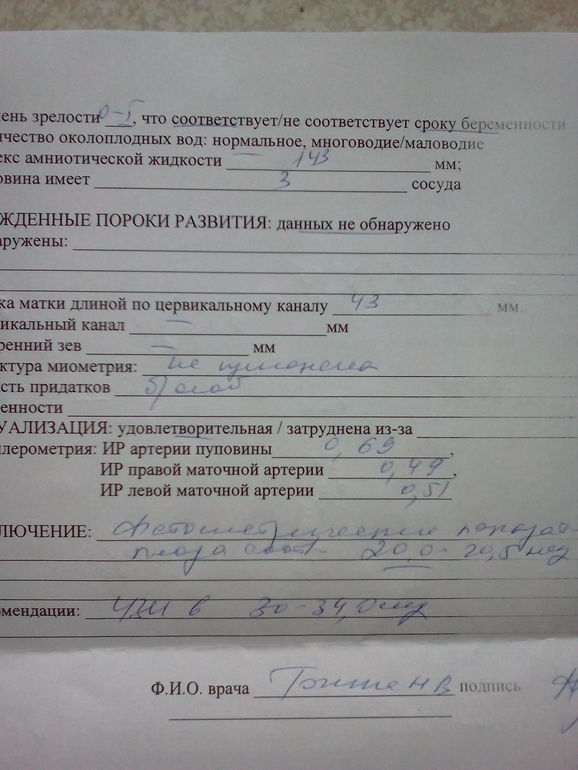 ень зрелости 0-I, что соответствует/не соответствует сроку беременности
ичество околоплодных вод: нормальное, многоводие/маловодие
екс амниотической жидкости 143 мм;
овина имеет 3 сосуда
ЖДЕННЫЕ ПОРОКИ РАЗВИТИЯ: данных не обнаружено
аружены:
ка матки длиной по цервикальному каналу 43 мм.
икальный канал — мм
ренний зев — мм
ктура миометрия: не изменена
асть придатков б/особ
енности
УАЛИЗАЦИЯ: удовлетворительная / затруднена из-за
плерометрия: ИР артерии пуповины 0,69,
ИР правой маточной артерии 0,49,
ИР левой маточной артерии 0,51
ЛЮЧЕНИЕ: Фетометрические показат
плода соот 20,0-20,5 нед
омендации: УЗИ в 30-34,0 нед
Ф.И.О. врача подпись